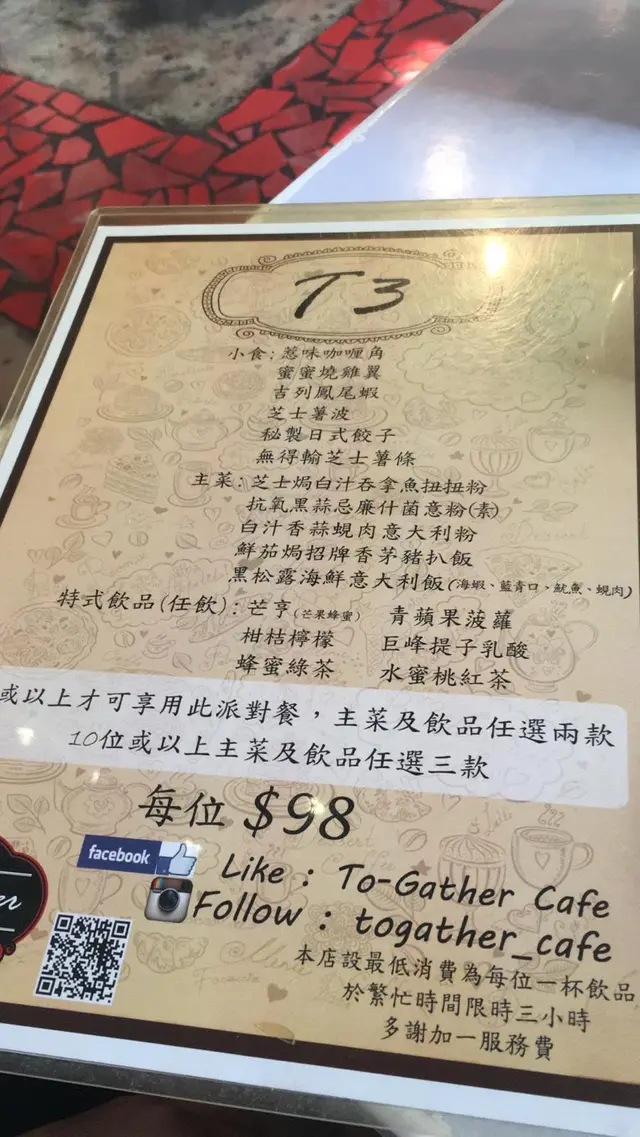 T3
小食：惹味咖喱角
蜜蜜燒雞翼
吉列鳳尾蝦
芝士薯波
秘製日式餃子
無得輸芝士薯條
主菜：芝士焗白汁吞拿魚扭扭粉
抗氧黑蒜忌廉什菌意粉(素)
白汁香蒜蜆肉意大利粉
鮮茄焗招牌香茅豬扒飯
黑松露海鮮意大利飯(海蝦、藍青口、魷魚、蜆肉)
特式飲品(任飲)：芒亨(芒果蜂蜜) 青蘋果菠蘿
柑桔檸檬 巨峰提子乳酸
蜂蜜綠茶 水蜜桃紅茶
或以上才可享用此派對餐，主菜及飲品任選兩款
10位或以上主菜及飲品任選三款
每位 $98
facebook
Like : To-Gather Cafe
Follow : togather_cafe
本店設最低消費為每位一杯飲品
於繁忙時間限時三小時
多謝加一服務費